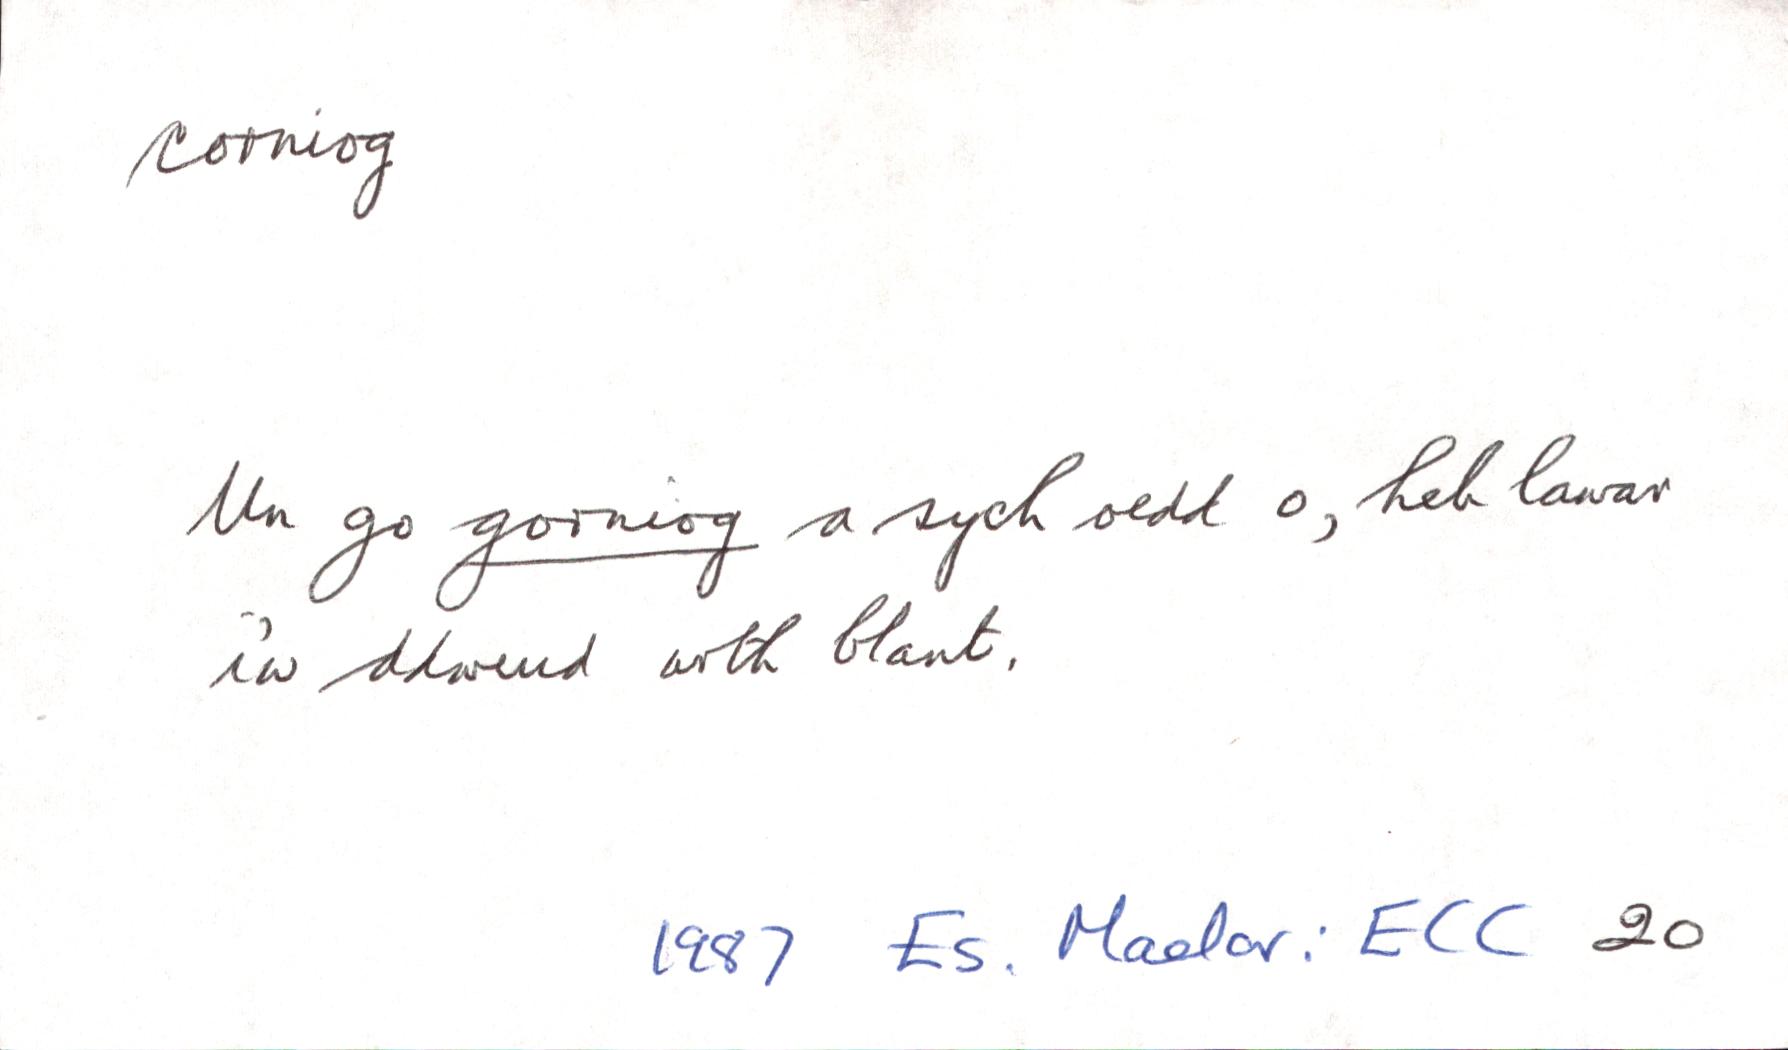 corniog
Un go gorniog a sych oedd o, heb lawar
i'w ddweud wrth blant.
1987 Es. Maelor: ECC 20